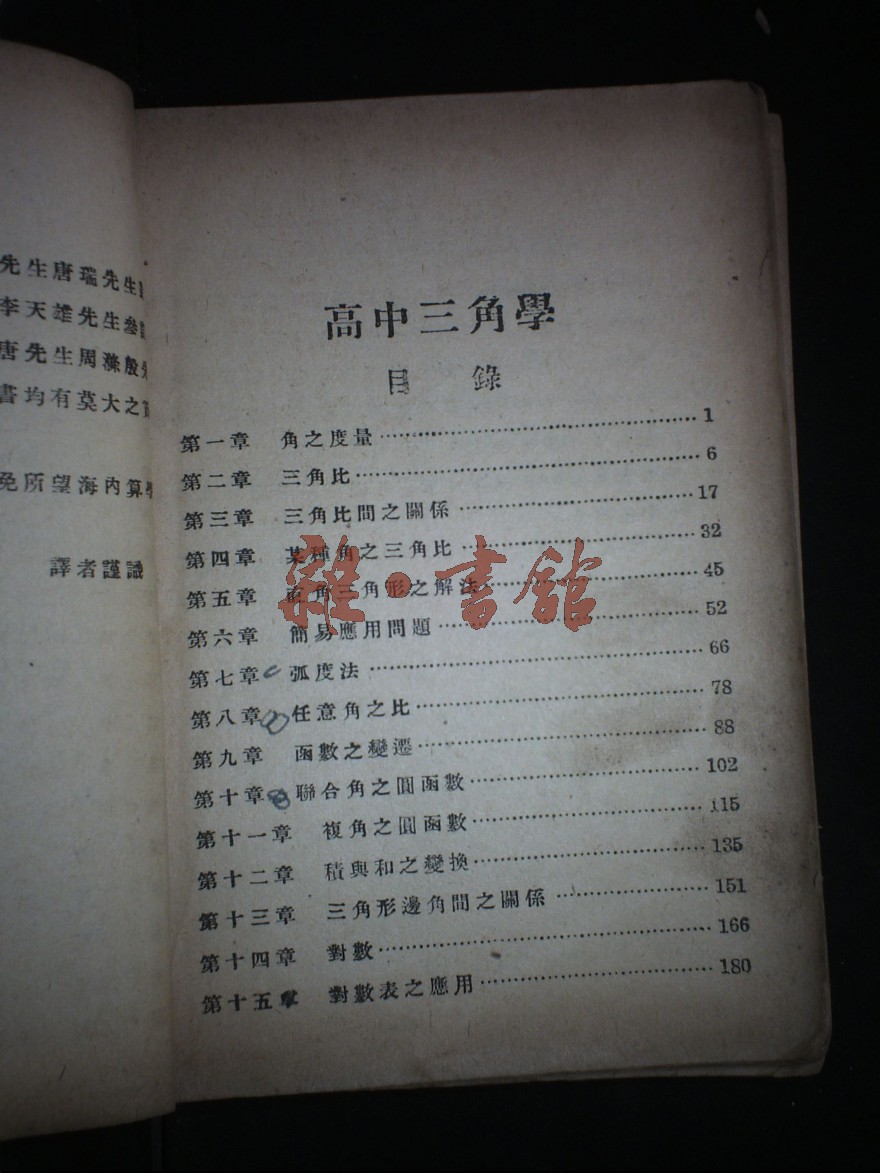 先生唐瑞先生
李天雄先生參
唐先生周滌殷
書均有莫大之
免所望海內算學
譯者謹識
高中三角學
目 錄
第一章 角之度量……1
第二章 三角比……6
第三章 三角比間之關係……17
第四章 某種角之三角比……32
第五章 直角三角形之解法……45
第六章 簡易應用問題……52
第七章 弧度法……66
第八章 任意角之比……78
第九章 函數之變遷……88
第十章 聯合角之圓函數……102
第十一章 複角之圓函數……115
第十二章 積與和之變換……135
第十三章 三角形邊角間之關係……151
第十四章 對數……166
第十五章 對數表之應用……180
雜·書館